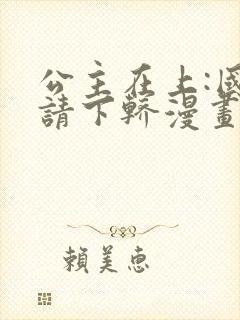 公主在上:國
請下轎漫畫
賴美惠